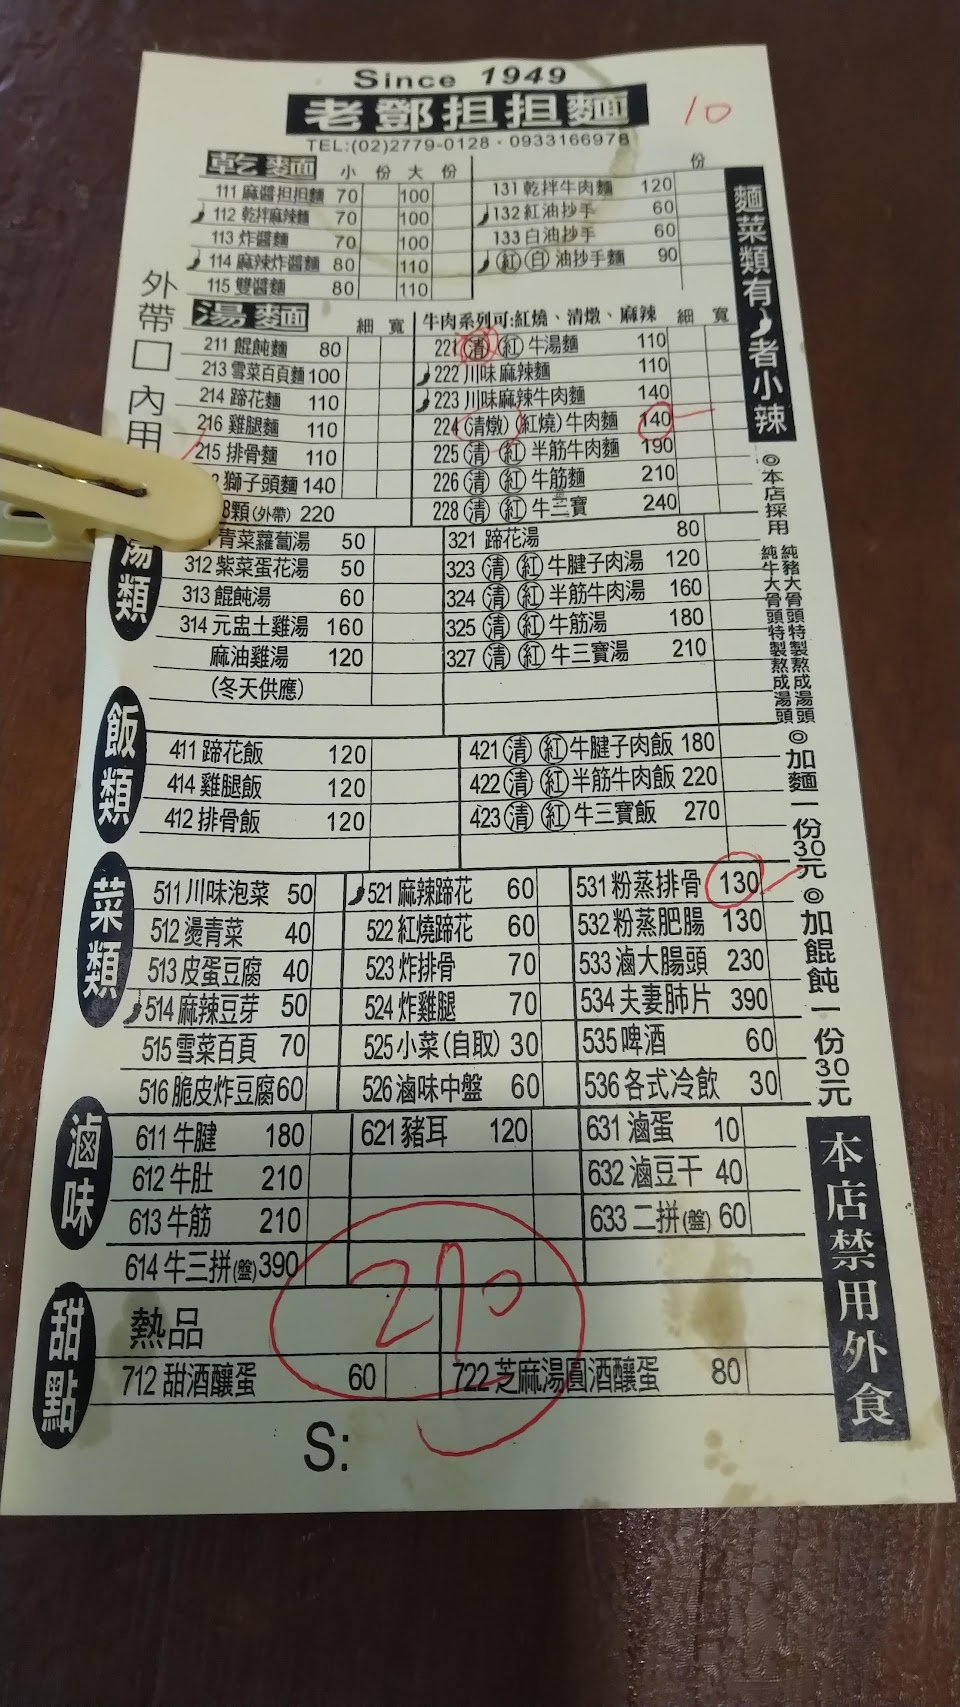 Since 1949
老鄧担担麵
10
TEL:(02)2779-0128・0933166978
乾麵 小 份 大 份
111 麻醬担担麵 70 100
112 乾拌麻辣麵 70 100
113 炸醬麵 70 100
114 麻辣炸醬麵 80 110
115 雙醬麵 80 110
份
131 乾拌牛肉麵 120
132 紅油抄手 60
133 白油抄手 60
紅 白 油抄手麵 90
麵菜類有者小辣
外帶口 內用
湯麵 細 寬
211 餛飩麵 80
213 雪菜百頁麵 100
214 蹄花麵 110
216 雞腿麵 110
215 排骨麵 110
獅子頭麵 140
8顆(外帶) 220
牛肉系列可:紅燒、清燉、麻辣 細 寬
221 清 紅 牛湯麵 110
222 川味麻辣麵 110
223 川味麻辣牛肉麵 140
224 (清燉) (紅燒) 牛肉麵 140
225 清 紅 半筋牛肉麵 190
226 清 紅 牛筋麵 210
228 清 紅 牛三寶 240
湯類
青菜蘿蔔湯 50
312 紫菜蛋花湯 50
313 餛飩湯 60
314 元盅土雞湯 160
麻油雞湯 120
(冬天供應)
321 蹄花湯 80
323 清 紅 牛腱子肉湯 120
324 清 紅 半筋牛肉湯 160
325 清 紅 牛筋湯 180
327 清 紅 牛三寶湯 210
◎本店採用
純豬大骨頭特製熬成湯頭
純牛大骨頭特製熬成湯頭
◎加麵一份30元
◎加餛飩一份30元
飯類
411 蹄花飯 120
414 雞腿飯 120
412 排骨飯 120
421 清 紅 牛腱子肉飯 180
422 清 紅 半筋牛肉飯 220
423 清 紅 牛三寶飯 270
菜類
511 川味泡菜 50
512 燙青菜 40
513 皮蛋豆腐 40
514 麻辣豆芽 50
515 雪菜百頁 70
516 脆皮炸豆腐 60
521 麻辣蹄花 60
522 紅燒蹄花 60
523 炸排骨 70
524 炸雞腿 70
525 小菜(自取) 30
526 滷味中盤 60
531 粉蒸排骨 130
532 粉蒸肥腸 130
533 滷大腸頭 230
534 夫妻肺片 390
535 啤酒 60
536 各式冷飲 30
滷味
611 牛腱 180
612 牛肚 210
613 牛筋 210
614 牛三拼(盤) 390
621 豬耳 120
631 滷蛋 10
632 滷豆干 40
633 二拼(盤) 60
本店禁用外食
甜點
熱品
712 甜酒釀蛋 60
722 芝麻湯圓酒釀蛋 80
S: